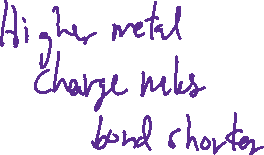 Higher metal
charge mks
bond shorter